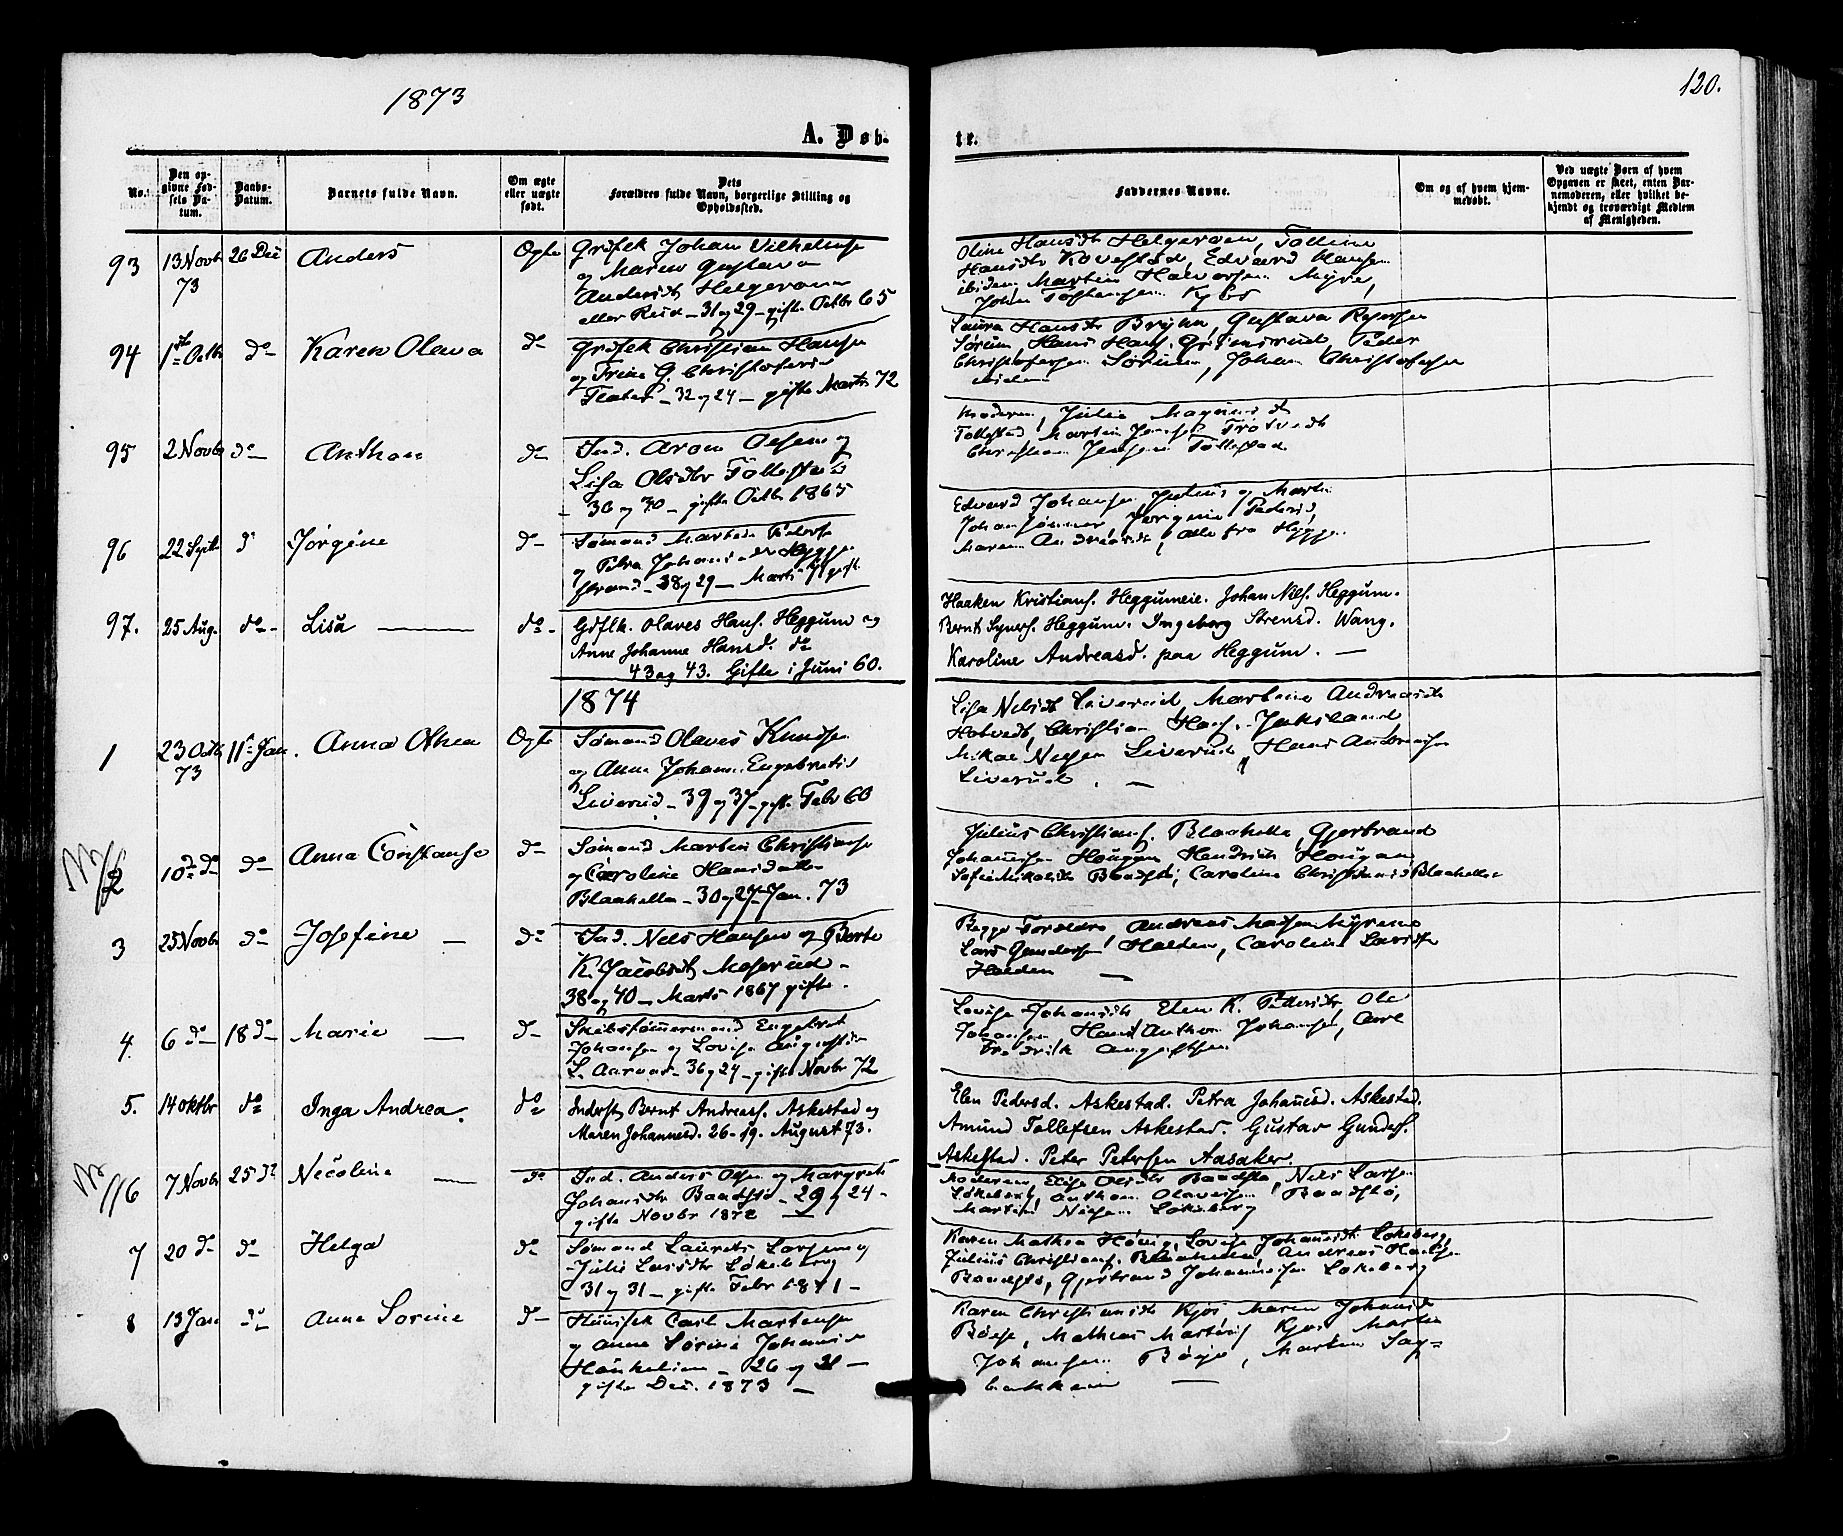 1873
120.
A. Døb-
te.
No.
Den op-
givne Fød-
sels Da-
tum.
Daabs-
Datum.
Barnets fulde Navn.
Om ægte
eller uægte
født.
Dets
Forældres fulde Navn, borgerlige Stilling og
Opholdssted.
Faddernes Navne.
Om og af hvem hjem-
medøbt.
Ved uægte Børn af hvem
Opgaven er skeet, enten Bar-
nemoderen, eller hvilket be-
kjendt og troværdigt Medlem
af Menigheden.
93 13 Novb 73 26 Dec Anders Ægte
Grdsek Johan Vilhelmsen
og Maren Gustava
Andersdtr Helgeroen
eller Reid - 31 og 29 - gifte Octbr 65
Oline Hansdtr Helgeroen, Tolline
Hansdtr Kovestad, Edvard Hansen
ibidem Martin Halvorsen Myre,
94 1ste Octb do Karen Olava do
Grdsek Christian Hansen
og Trine G. Christofersd
32 og 24 - gifte Marts 72
Laura Hansdtr Gustava
Sørum, Hans Hans. Peder
Christofersen Sørum, Johan Christofersen
95 2 Novbr do Anthon do
Ind. Aron Olsen og
Lisa Olsdtr Tollestad
36 og 30 - gifte Octbr 1865
Moderen, Julie Magnusdtr
Tollestad Martin
Christian Jensen Tollestad
96 22 Septb do Jørgine do
Sømand Martin Peders
og Petra Johansd Hygge
strand - 38 og 29 - Marts gift
Edvard Johansen, Julius og Martin
Johan Jørgine Pedersd,
Maren Andreasdtr, alle fra Hygge
97. 25 Aug. do Lisa do
Gdflk. Olaves Hans. Heggum og
Anne Johanne Hansd. do
43 og 43. Gifte i Juni 60.
Haaken Kristians. Heggumeie. Johan Nils. Heggum.
Bernt Syvers. Heggum. Ingeborg Sørensd. Wang.
Karoline Andreasd. paa Heggum.
1874
1 23 Octb 73 11te Jan. Anna Othea Ægte
Sømand Olaves Knudsen
og Anne Johanne Engebretsd
Liverud - 39 og 37 - gift Febr 60
Lisa Nilsdtr Liverud, Martine Andreasdtr
Hotvedt, Christian Hans.
Mikal Nilsen Liverud, Hans Andreassen
Liverud
2 10de do do Anna Constanse do
Sømand Martin Christianse
og Caroline Hansdatter
Blaahella - 30 og 27 - Jan. 73
Julius Christians. Blaahella, Gjerbrand
Johannesen Hougan Hendrich Hougan
Sofie Nikolsdtr Baadstø, Caroline Christiansd Blaahella
3 25 Novbr do Josefine do
Ind. Nels Hansen og Berte
K. Jacobsdtr Moserud
38 og 40 - Marts 1867 gifte.
Begge Forældre, Andreas Madsen Myrene
Lars Gundersen Halden, Caroline Larsdtr
Halden
4. 6 do 18 do Marie do
Skibstømmermand Engebret
Johansen og Lovise Augustin
L. Aarvas - 36 og 24 - gifte Novbr 72
Lovise Johansdtr Elen K. Pedersdtr Ole
Johansen Hans Anthon Johansen, Carl
Fredrik Augustsen
5. 14 Oktbr do Inga Andrea. do
Inderst Bernt Andreass. Askestad og
Maren Johannesd. 26-19. August 73.
Elen Pedersd. Askestad. Petra Johannesd. Askestad.
Amund Tollefsen Askestad. Gustav Gunders.
Askestad. Peter Petersen Aasaker.
6 7 Novbr 25 do Necoline do
Ind. Anders Olsen og Margrete
Johansdtr Baadstø - 29 og 24 -
gifte Novbr 1872
Moderen, Elise Olsdtr Baadstø, Nils Larsen
Løkeberg, Anthon Olavesen Baadstø,
Martin Nilsen Løkeberg
7 20 do do Helga do
Sømand Laurits Larsen og
Julie Larsdtr Løkeberg
31 og 31 - gifte Febr 1871 -
Karen Mathea Hønig, Lovise Johansdtr Løkeberg,
Julius Christians. Blaahella, Andreas Hansen
Baadstø, Gjerbrand Johannesen Løkeberg
8 13 Jan do Anne Sorine do
Huusek Carl Martinsen
og Anne Sorine Johansd
26 og 21 -
gifte Dec. 1873 -
Karen Christiansdtr Kjøs Maren Johansd
Bøeje, Mathias Martins Kjøs Martin
Johansen Bøeje, Martin Sag-
bakken